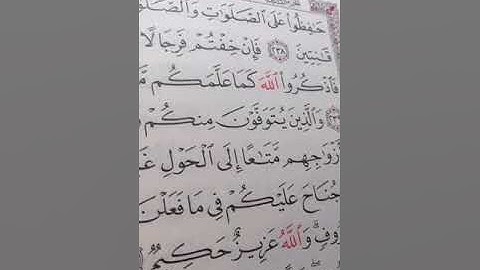 حَٰفِظُوا۟ عَلَى ٱلصَّلَوَٰتِ وَٱلصَّلَو
قَٰنِتِينَ ٢٣٨ فَإِنْ خِفْتُمْ فَرِجَالًا
فَٱذْكُرُوا۟ ٱللَّهَ كَمَا عَلَّمَكُم
وَٱلَّذِينَ يُتَوَفَّوْنَ مِنكُمْ
أَزْوَٰجِهِم مَّتَٰعًا إِلَى ٱلْحَوْلِ غَ
جُنَاحَ عَلَيْكُمْ فِى مَا فَعَلْنَ
رُوفٍ وَٱللَّهُ عَزِيزٌ حَكِيمٌ